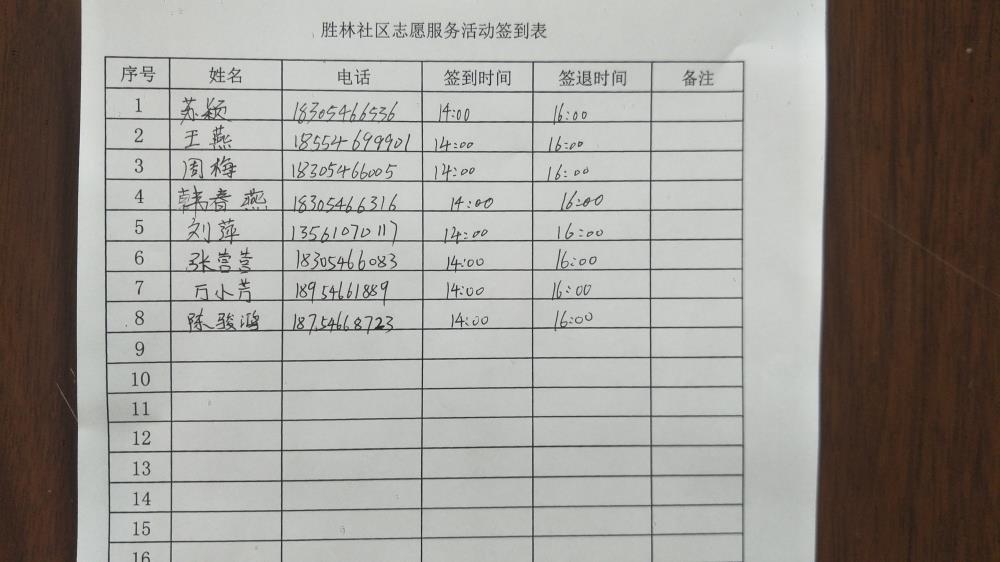 胜林社区志愿服务活动签到表
序号 姓名 电话 签到时间 签退时间 备注
1 苏颖 18305466536 14:00 16:00
2 王燕 18554699901 14:00 16:00
3 周梅 18305466005 14:00 16:00
4 韩春燕 18305466316 14:00 16:00
5 刘萍 13561070117 14:00 16:00
6 张营营 18305466083 14:00 16:00
7 万小芳 18954661889 14:00 16:00
8 陈骏鸿 18754668723 14:00 16:00
9
10
11
12
13
14
15
16